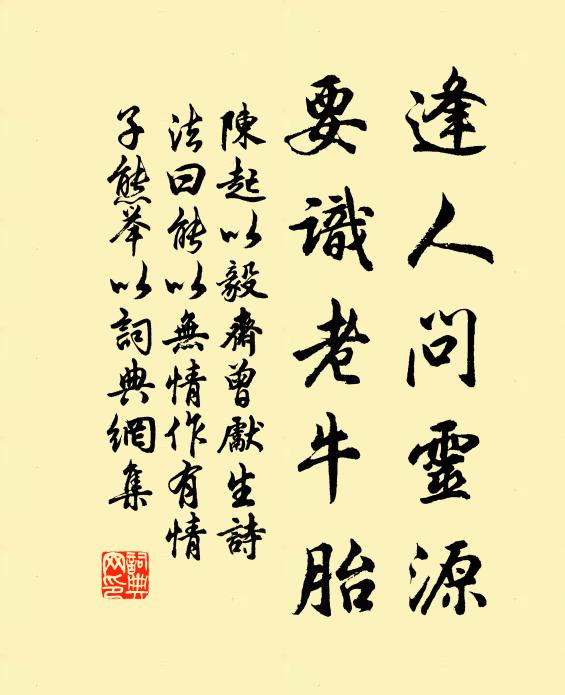 逢人問靈源
要識老牛胎
陳起以毅齋曾獻生詩
法曰能以無情作有情
子熊举以詞典網集
詞典网印